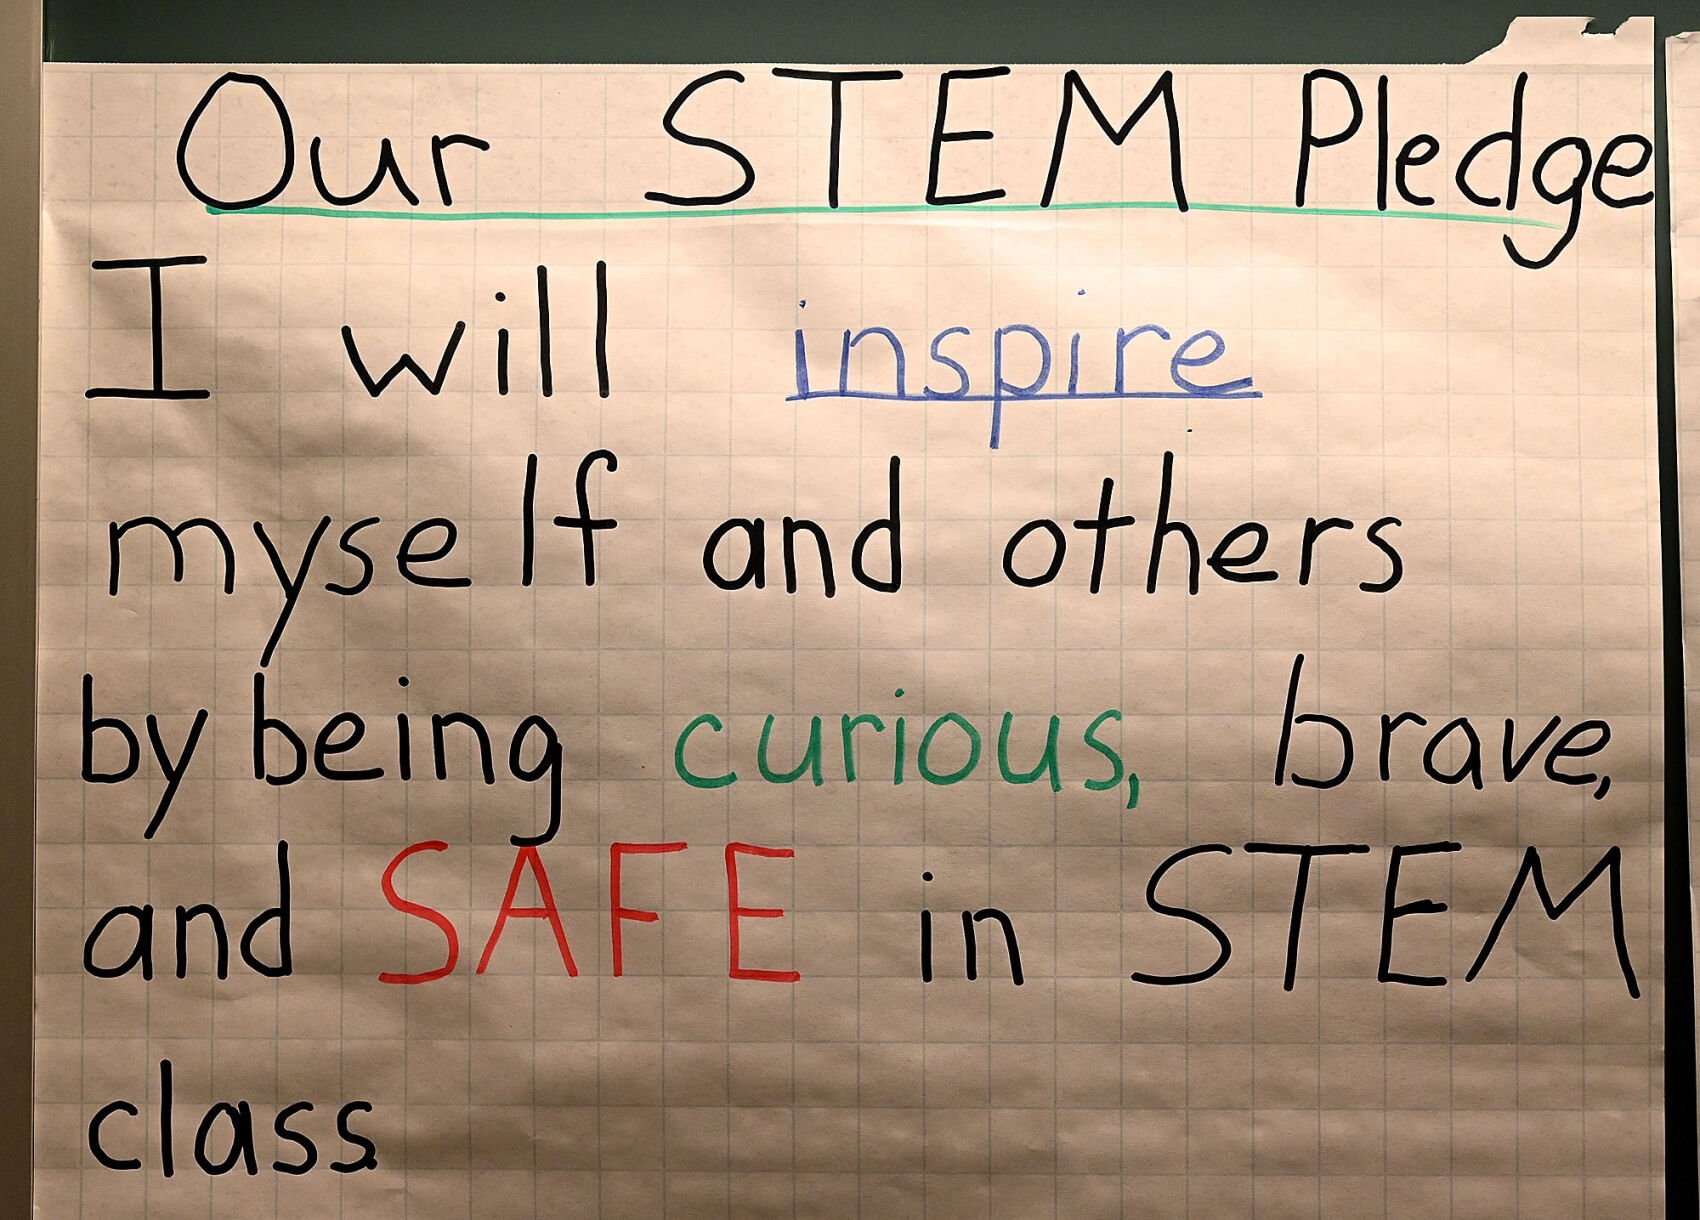 Our STEM Pledge
I will inspire
myself and others
by being curious, brave,
and SAFE in STEM
class.